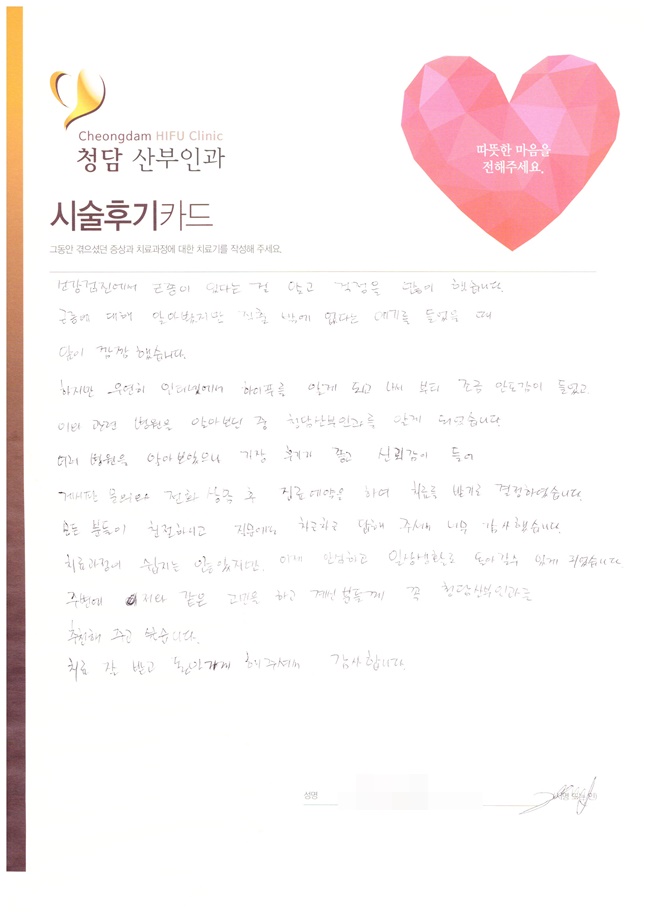 Cheongdam HIFU Clinic
청담 산부인과
따뜻한 마음을
전해주세요.
시술후기카드
그동안 겪으셨던 증상과 치료과정에 대한 치료기를 작성해 주세요.
건강검진에서 근종이 있다는 걸 알고 걱정을 많이 했습니다.
근종에 대해 알아봤지만 적출 밖에 없다는 얘기를 들었을 때
많이 깜깜했습니다.
하지만 우연히 인터넷에서 하이푸를 알게 되고 나서 부터 조금 안도감이 들었고
이와 관련 병원을 알아보던 중 청담산부인과를 알게 되었습니다
여러 병원을 알아보았으나 가장 후기가 좋고 신뢰감이 들어
게시판 문의와 전화 상담 후 진료예약을 하여 치료를 받기로 결정하였습니다.
모든 분들이 친절하시고 질문에도 차근차근 답해 주셔서 너무 감사했습니다.
치료과정이 쉽지는 않았지만, 이제 안심하고 일상생활로 돌아갈수 있게 되었습니다
주변에 저와 같은 고민을 하고 계신 분들께 꼭 청담산부인과를
추천해 주고 싶습니다.
치료 잘 받고 돌아가게 해주셔서 감사합니다.
성명